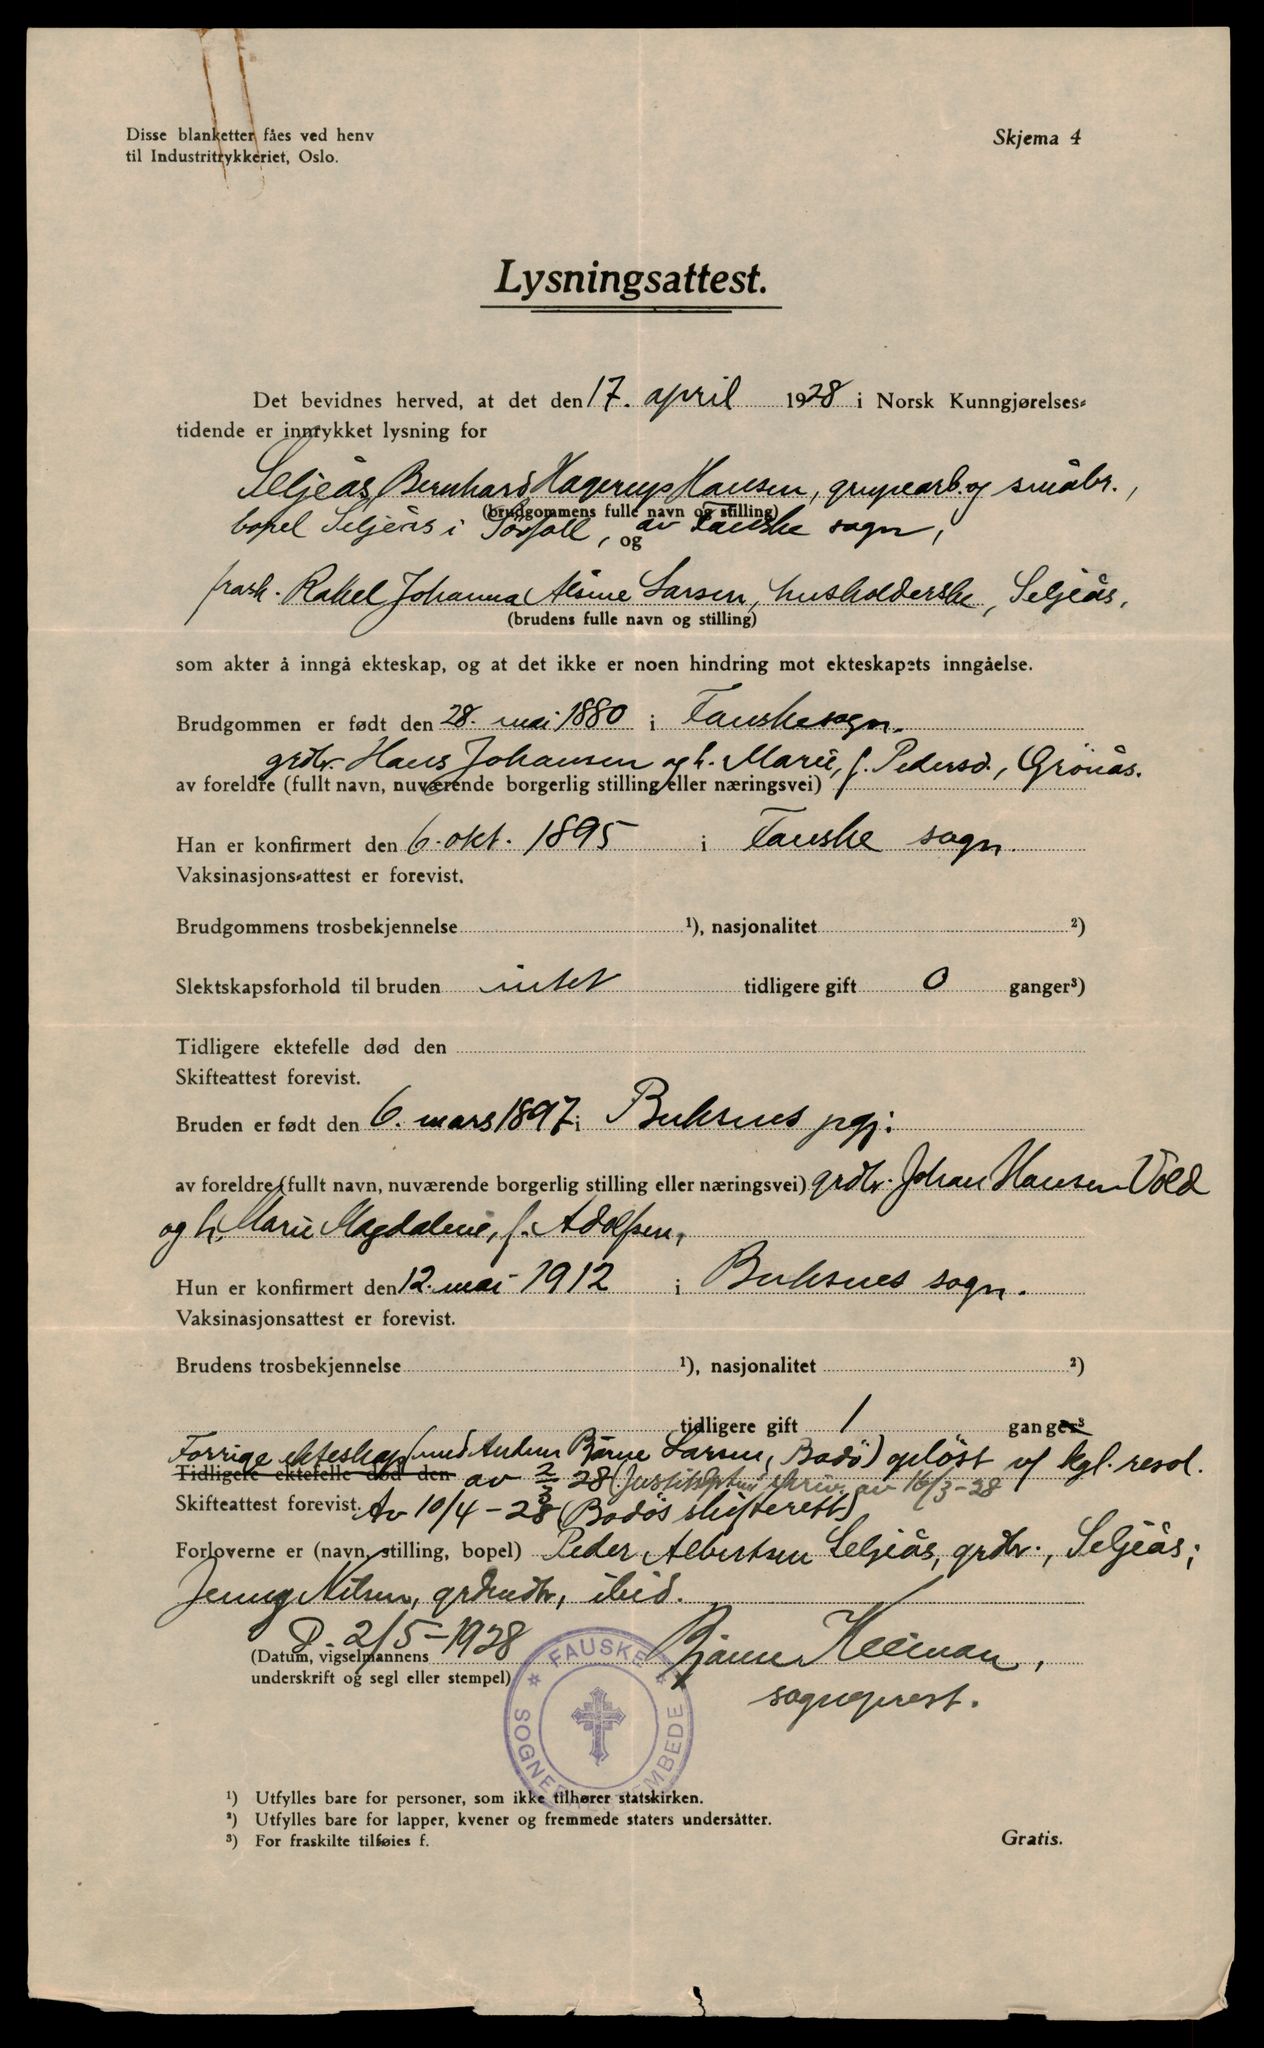 Disse blanketter fåes ved henv
til Industritrykkeriet, Oslo.
Skjema 4
Lysningsattest.
Det bevidnes herved, at det den 17. april 1928 i Norsk Kunngjørelses-
tidende er innrykket lysning for
Seljeås, Bernhard Hagerup Hansen, grupearb. og småbr.,
(brudgommens fulle navn og stilling)
bopel Seljeås i Sørfoll, av Fauske sogn,
og
frask. Rakel Johanna Alsine Larsen, husholderske, Seljeås,
(brudens fulle navn og stilling)
som akter å inngå ekteskap, og at det ikke er noen hindring mot ekteskapets inngåelse.
Brudgommen er født den 28. mai 1880 i Fauske sogn.
grdbr. Hans Johansen og h. Marie, f. Pedersd., Grönås.
av foreldre (fullt navn, nuværende borgerlig stilling eller næringsvei)
Han er konfirmert den 6. okt. 1895 i Fauske sogn.
Vaksinasjons-attest er forevist.
Brudgommens trosbekjennelse ¹), nasjonalitet ²)
Slektskapsforhold til bruden intet tidligere gift 0 ganger³)
Tidligere ektefelle død den
Skifteattest forevist.
Bruden er født den 6. mars 1897 i Buksnes pgj:
av foreldre (fullt navn, nuværende borgerlig stilling eller næringsvei) grdbr. Johan Hansen Vold
og h. Marie Magdalene, f. Adolfsen,
Hun er konfirmert den 12. mai 1912 i Buksnes sogn.
Vaksinasjonsattest er forevist.
Brudens trosbekjennelse ¹), nasjonalitet ²)
tidligere gift 1 ganger³
Forrige ekteskap (med Bjarne Larsen, Bodö) oplöst v/ kgl. resol.
Tidligere ektefelle død den av 2/3 28 (Justitsdptm. skriv. av 16/3-28
Skifteattest forevist. Av 10/4-28 (Bodös skifterett)
Forloverne er (navn, stilling, bopel) Peder Albertsen Seljeås, grdbr., Seljeås;
Jenny Nilsen, ibid.
D. 2/5-1928 Bjarne
(Datum, vigselmannens
underskrift og segl eller stempel)
sogneprest.
FAUSKE
SOGNEPRESTEMBEDE
¹) Utfylles bare for personer, som ikke tilhører statskirken.
²) Utfylles bare for lapper, kvener og fremmede staters undersåtter.
³) For fraskilte tilføies f.
Gratis.